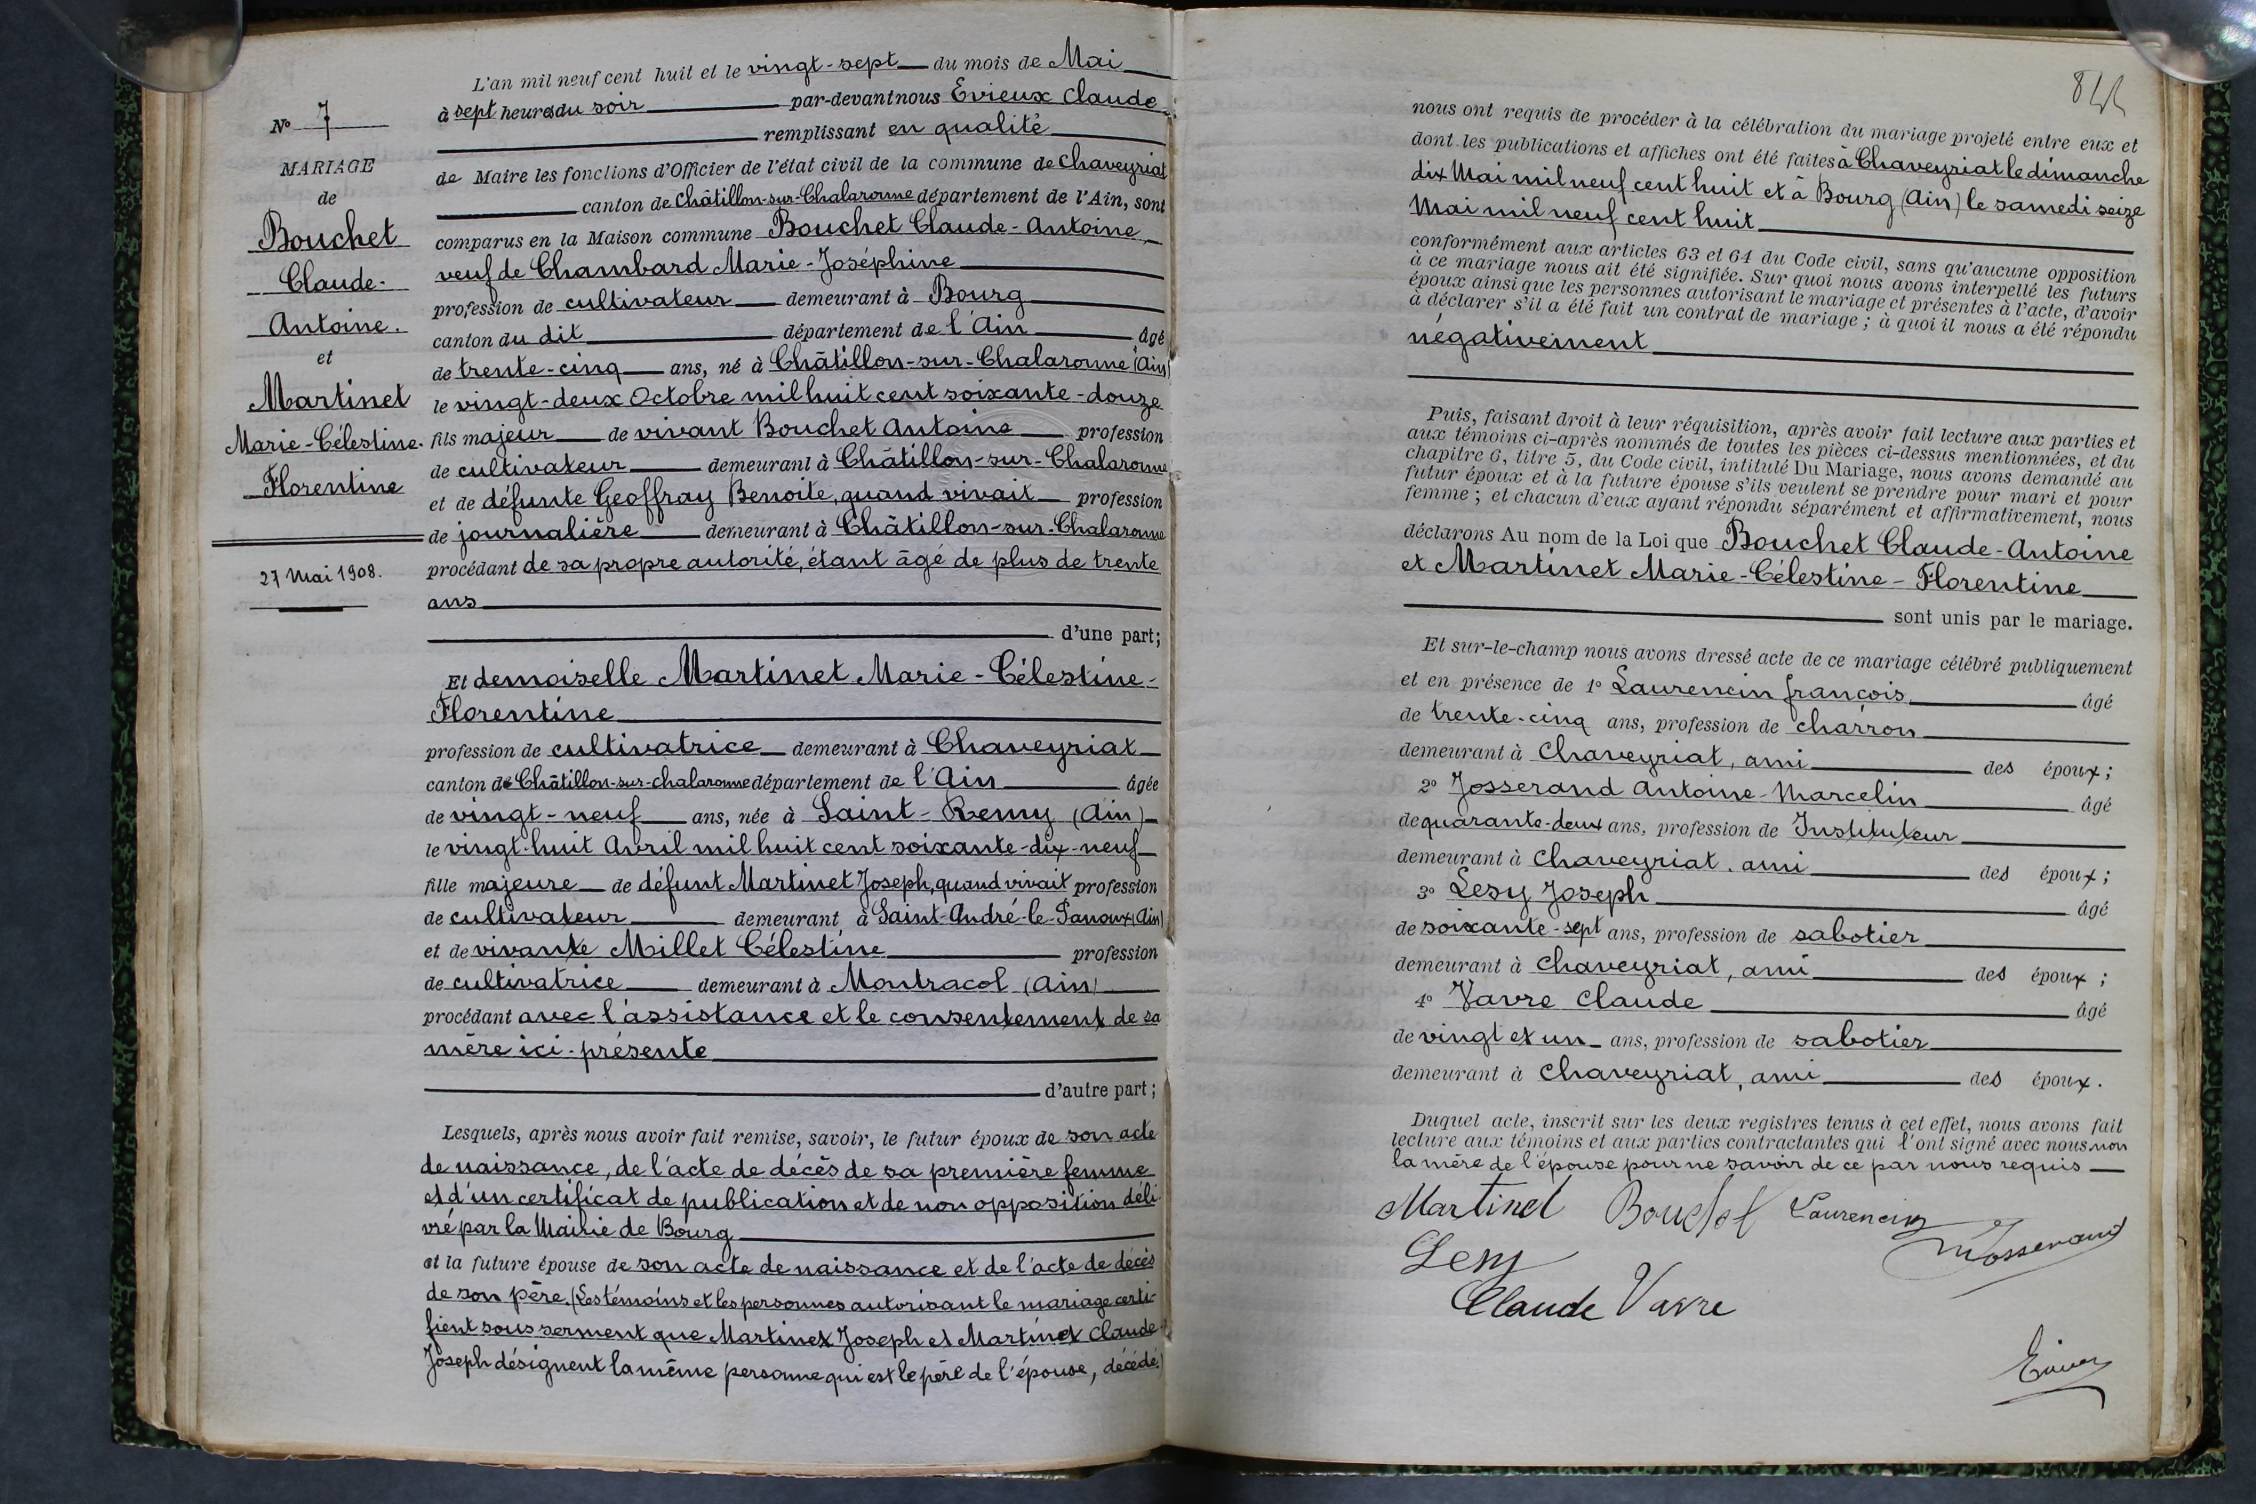 L'an mil neuf cent huit et le vingt-sept du mois de Mai
à sept heures du soir par-devant nous Evieux Claude
remplissant en qualité
de Maire les fonctions d'Officier de l'état civil de la commune de Chaveyriat
canton de Châtillon-sur-Chalaronne département de l'Ain, sont
comparus en la Maison commune Bouchet Claude-Antoine
veuf de Chambard Marie-Joséphine
profession de cultivateur demeurant à Bourg
canton du dit département de l'Ain âgé
de trente-cinq ans, né à Châtillon-sur-Chalaronne (Ain)
le vingt-deux Octobre mil huit cent soixante-douze
fils majeur de vivant Bouchet Antoine profession
de cultivateur demeurant à Châtillon-sur-Chalaronne
et de défunte Geoffray Benoite, quand vivait profession
de journalière demeurant à Châtillon-sur-Chalaronne
procédant de sa propre autorité, étant âgé de plus de trente
ans
d'une part;
Et demoiselle Martinet Marie-Célestine-
Florentine
profession de cultivatrice demeurant à Chaveyriat
canton de Châtillon-sur-chalaronne département de l'Ain âgée
de vingt-neuf ans, née à Saint-Remy (Ain)
le vingt-huit Avril mil huit cent soixante-dix-neuf
fille majeure de défunt Martinet Joseph, quand vivait profession
de cultivateur demeurant à Saint-André-le-Panoux (Ain)
et de vivante Millet Célestine profession
de cultivatrice demeurant à Montracol (Ain)
procédant avec l'assistance et le consentement de sa
mère ici-présente
d'autre part;
Lesquels, après nous avoir fait remise, savoir, le futur époux de son acte
de naissance, de l'acte de décès de sa première femme
et d'un certificat de publication et de non opposition déli-
vré par la Mairie de Bourg
et la future épouse de son acte de naissance et de l'acte de décès
de son père. (Les témoins et les personnes autorisant le mariage certi-
fient sous serment que Martinet Joseph et Martinet Claude
Joseph désignent la même personne qui est le père de l'épouse, décédé.)
No 7
MARIAGE
de
Bouchet
Claude-
Antoine.
et
Martinet
Marie-Célestine-
Florentine
27 Mai 1908.
nous ont requis de procéder à la célébration du mariage projeté entre eux et
dont les publications et affiches ont été faites à Chaveyriat le dimanche
dix Mai mil neuf cent huit et à Bourg (Ain) le samedi seize
Mai mil neuf cent huit
conformément aux articles 63 et 64 du Code civil, sans qu'aucune opposition
à ce mariage nous ait été signifiée. Sur quoi nous avons interpellé les futurs
époux ainsi que les personnes autorisant le mariage et présentes à l'acte, d'avoir
à déclarer s'il a été fait un contrat de mariage; à quoi il nous a été répondu
négativement
Puis, faisant droit à leur réquisition, après avoir fait lecture aux parties et
aux témoins ci-après nommés de toutes les pièces ci-dessus mentionnées, et du
chapitre 6, titre 5, du Code civil, intitulé Du Mariage, nous avons demandé au
futur époux et à la future épouse s'ils veulent se prendre pour mari et pour
femme; et chacun d'eux ayant répondu séparément et affirmativement, nous
déclarons Au nom de la Loi que Bouchet Claude-Antoine
et Martinet Marie-Célestine-Florentine
sont unis par le mariage.
Et sur-le-champ nous avons dressé acte de ce mariage célébré publiquement
et en présence de 1o Laurencin françois âgé
de trente-cinq ans, profession de charron
demeurant à Chaveyriat, ami des époux;
2o Josserand Antoine-Marcelin âgé
de quarante-deux ans, profession de Instituteur
demeurant à Chaveyriat, ami des époux;
3o Lesy Joseph âgé
de soixante-sept ans, profession de sabotier
demeurant à Chaveyriat, ami des époux;
4o Vavre Claude âgé
de vingt et un ans, profession de sabotier
demeurant à Chaveyriat, ami des époux.
Duquel acte, inscrit sur les deux registres tenus à cet effet, nous avons fait
lecture aux témoins et aux parties contractantes qui l'ont signé avec nous, non
la mère de l'épouse pour ne savoir de ce par nous requis
Martinet Bouchet Laurencin
Josserand
Lesy
Claude Vavre
Evieux